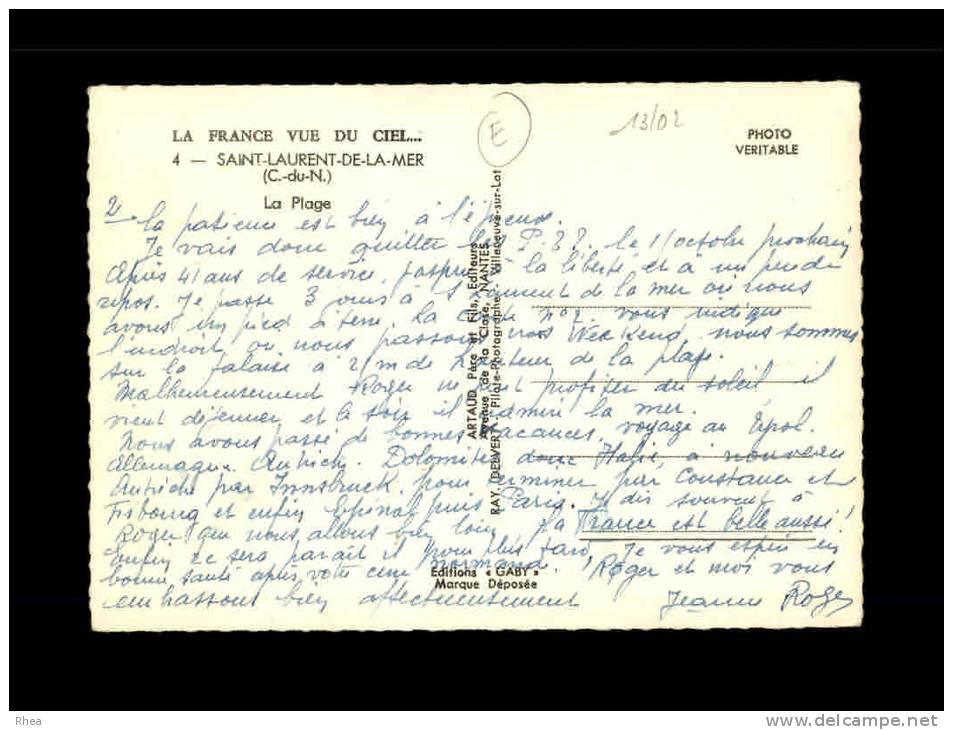 E
13/02
LA FRANCE VUE DU CIEL...
4 — SAINT-LAURENT-DE-LA-MER
(C.-du-N.)
La Plage
PHOTO
VERITABLE
2
la patience est bien à l'épreuve.
Je vais donc quitter les P.T.T. le 1/octobre prochain
Après 41 ans de service, j'aspire à la liberté et à un peu de
repos. Je passe 3 jours à St Laurent de la mer où nous
avons un pied à terre, la carte n°1 vous indique
l'endroit où nous passons nos Week end, nous sommes
sur la falaise à 2 m de hauteur de la plage.
Malheureusement Roger ne peut profiter du soleil il
vient déjeuner et le soir il admire la mer.
Nous avons passé de bonnes vacances, voyage au
Allemagne. Autriche. Dolomites donc Italie, à nouveau
Autriche par Innsbruck, pour terminer par Constance et
Fribourg et enfin Epinal puis Paris. Je dis souvent à
Roger que nous allons bien loin, la France est belle aussi!
Enfin ce sera paraît il pour plus tard, Je vous espère en
bonne santé après votre cure normande. Roger et moi vous
embrassons bien affectueusement Jeanne Roger
ARTAUD Père et Fils, Editeurs
Avenue de la Close, NANTES
RAY. DELVERT - Pilote-Photographe - Villeneuve-sur-Lot
Editions « GABY »
Marque Déposée
Rhea
www.delcampe.net